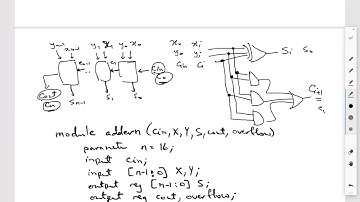 yn-1 xn-1 y1 x1 y0 x0
Cn-1 C1 Cin C0
Cout Cn
Sn-1 S1 S0
x0 xi
y0 yi
Cin Ci
Si S0
Ci+1 = c1
module addern (Cin, X, Y, S, cout, overflow)
parameter n = 16;
input Cin;
input [n-1:0] X, Y;
output reg [n-1:0] S;
output reg cout, overflow;